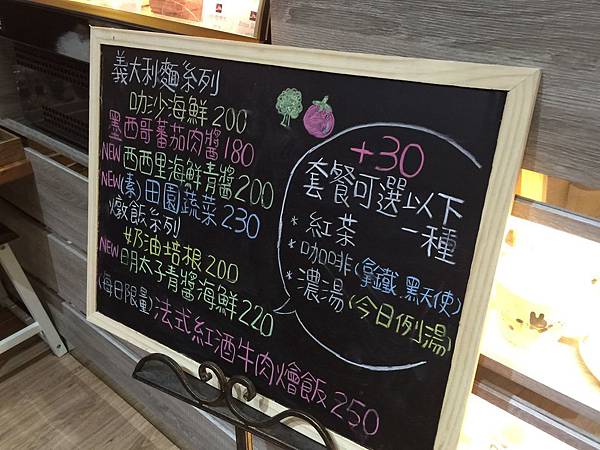 義大利麵系列
叻沙海鮮200
墨西哥蕃茄肉醬180
NEW西西里海鮮青醬200
NEW(素)田園蔬菜230
燉飯系列
奶油培根200
NEW明太子青醬海鮮220
(每日限量)法式紅酒牛肉燴飯250
+30
套餐可選以下
一種
*紅茶
*咖啡(拿鐵.黑天使)
*濃湯(今日例湯)